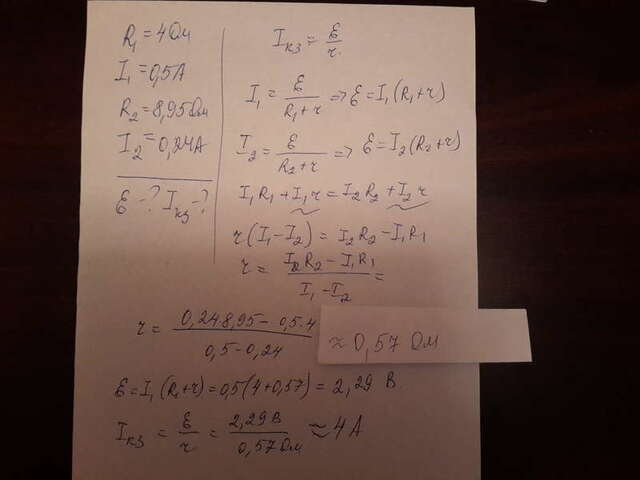 R₁ = 4 Ом
I₁ = 0,5 А
R₂ = 8,95 Ом
I₂ = 0,24 А
ℰ - ? Iкз - ?
Iкз = ℰ/r.
I₁ = ℰ/(R₁+r) => ℰ = I₁(R₁+r)
I₂ = ℰ/(R₂+r) => ℰ = I₂(R₂+r)
I₁R₁ + I₁r = I₂R₂ + I₂r
r(I₁-I₂) = I₂R₂ - I₁R₁
r = (I₂R₂ - I₁R₁)/(I₁-I₂) =
r = (0,24·8,95 - 0,5·4)/(0,5-0,24) ≈ 0,57 Ом
ℰ = I₁(R₁+r) = 0,5(4+0,57) = 2,29 В.
Iкз = ℰ/r = 2,29 В/0,57 Ом ≈ 4 А